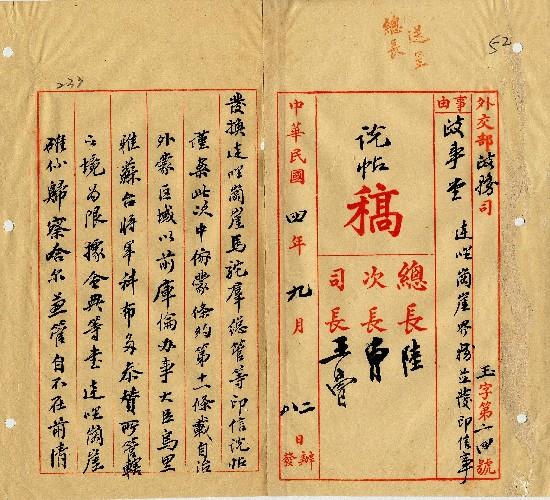 送呈
總長
52
外交部政務司
玉字第二四號
事由
政事堂 達哩崗崖界務並發印信事
說帖
稿
總長 陸
次長 曹
司長 王
中華民國四年九月 日
二 辦
八 發
233
發換達哩崗崖馬駝羣總管等印信說帖
謹案此次中俄蒙條約第十一條載自治
外蒙區域以前庫倫辦事大臣烏里
雅蘇台將軍科布多參贊所管轄
之境為限據會典等書達哩崗崖
確係歸察哈爾兼管自不在前清